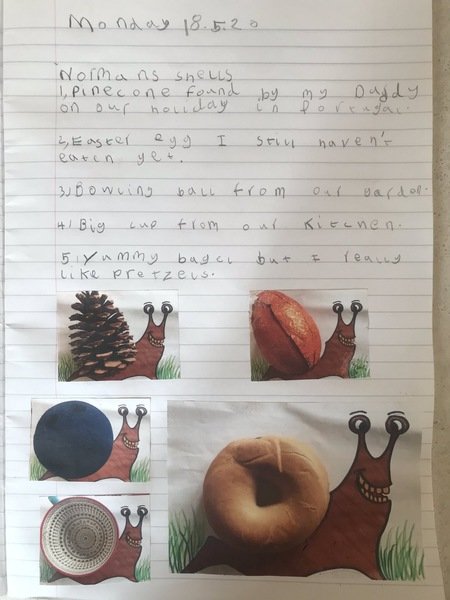 Monday 18.5.20
Normans shells
1, Pinecone found by my Daddy
on our holiday in Portugal.
2, Easter egg I still haven't
eaten yet.
3) Bowling ball from our garden.
4) Big cup from our kitchen.
5) Yummy bagel but I really
like pretzels.